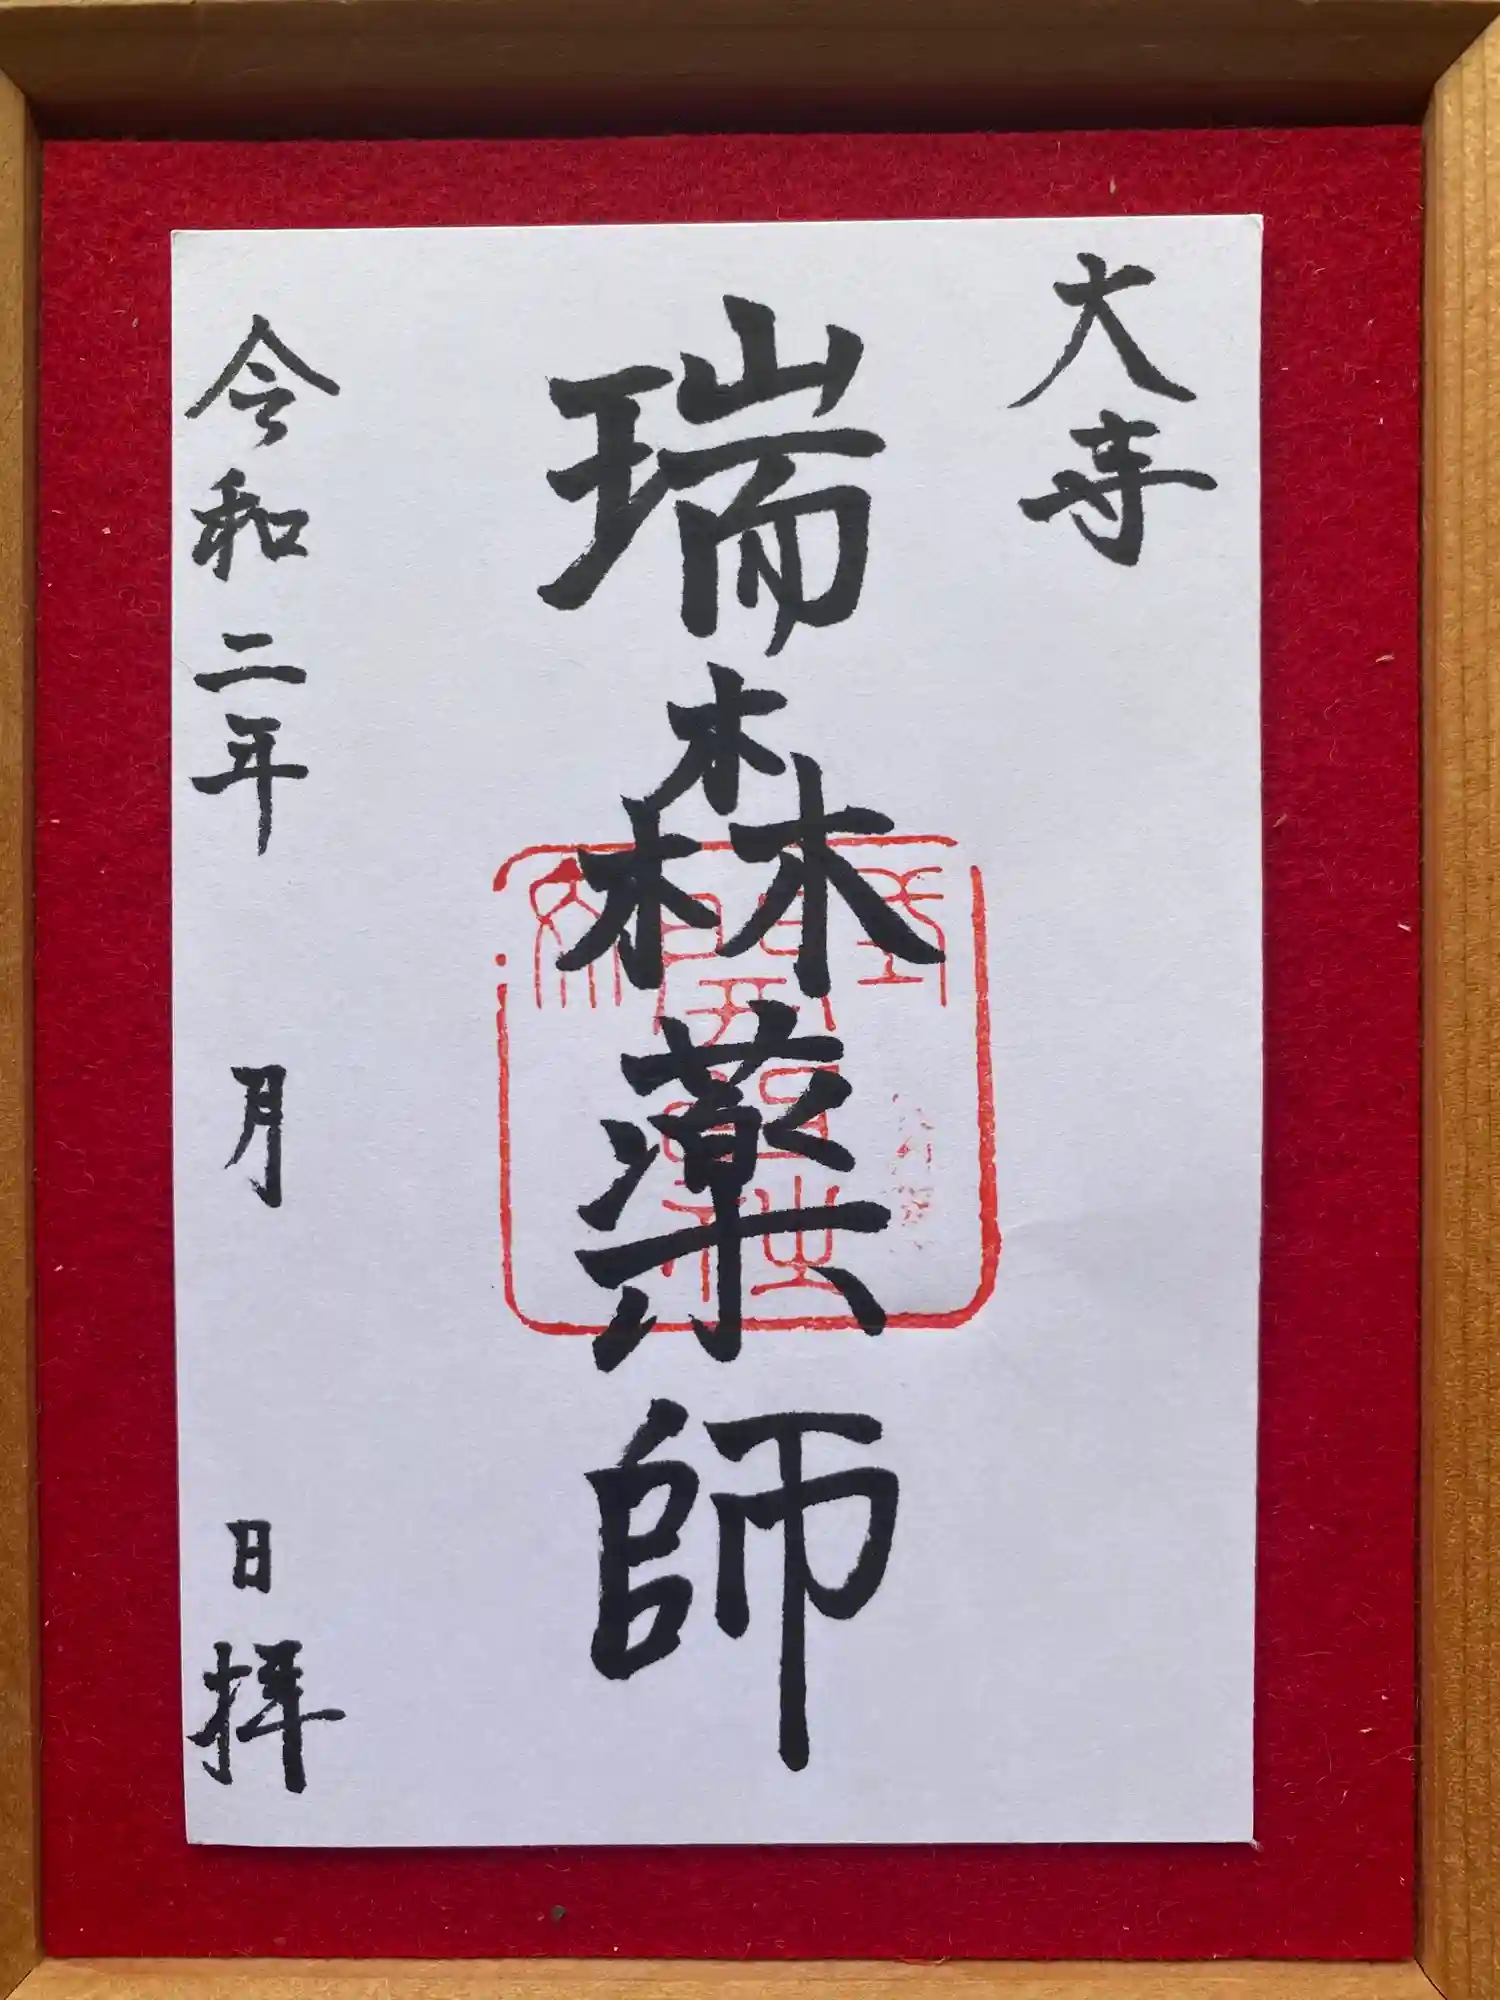 大寺
瑞森薬師
令和二年 月 日拝